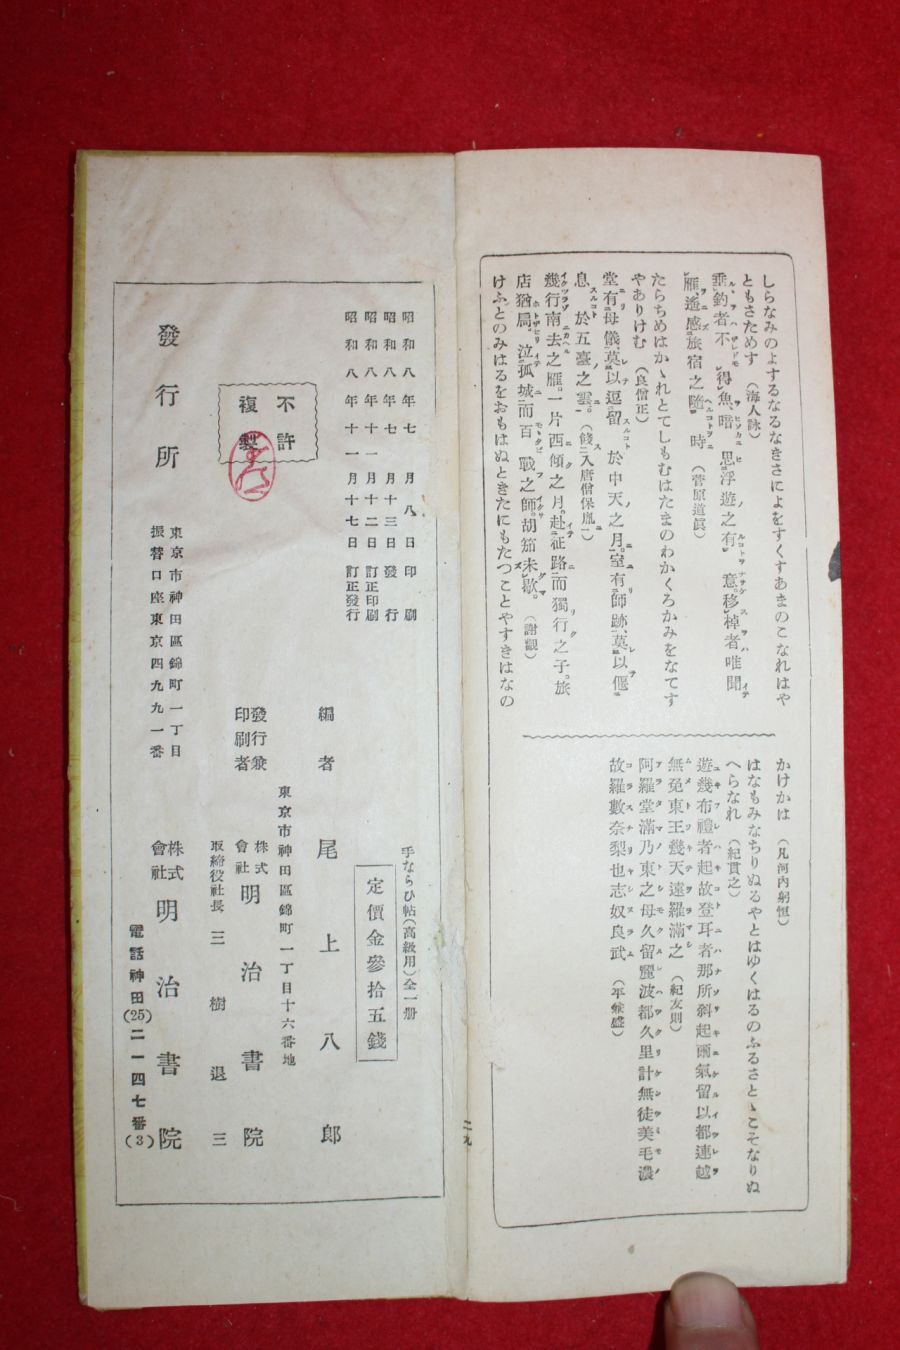 しらなみのよするなるなきさによをすくすあまのこなれはや
ともさためす（海人詠）
垂釣者不得魚、暗思浮遊之有意。移棹者唯聞
雁、遙感旅宿之隨時（菅原道眞）
たらちめはかゝれとてしもむはたまのわかくろかみをなてす
やありけむ（良僧正）
堂有母儀、莫以逗留於中天之月。室有師跡、莫以偃
息於五臺之雲。（餞入唐僧保胤）
幾行南去之雁。一片西傾之月。赴征路而獨行之子。旅
店猶扃。泣孤城而百戰之師。胡笳未歇。（謝觀）
けふとのみはるをおもはぬときたにもたつことやすきはなの
かけかは（凡河内躬恒）
はなもみなちりぬるやとはゆくはるのふるさとゝこそなりぬ
へらなれ（紀貫之）
遊幾布禮者起故登耳者那所斜起爾氣留以都連越
無免東王幾天遠羅滿之（紀友則）
阿羅堂滿乃東之母久留麗波都久里計無徒美毛濃
故羅數奈梨也志奴良武（平兼盛）
二九
手ならひ帖（高級用）全一册
定價金參拾五錢
昭和八年七月八日印刷
昭和八年七月十三日發行
昭和八年十一月十二日訂正印刷
昭和八年十一月十七日訂正發行
不許
複製
編者 尾上八郎
東京市神田區錦町一丁目十六番地
發行兼
印刷者 株式會社 明治書院
取締役社長 三樹退三
發行所
東京市神田區錦町一丁目
振替口座東京四九九一番
株式會社 明治書院
電話神田(25)二一四七番(3)